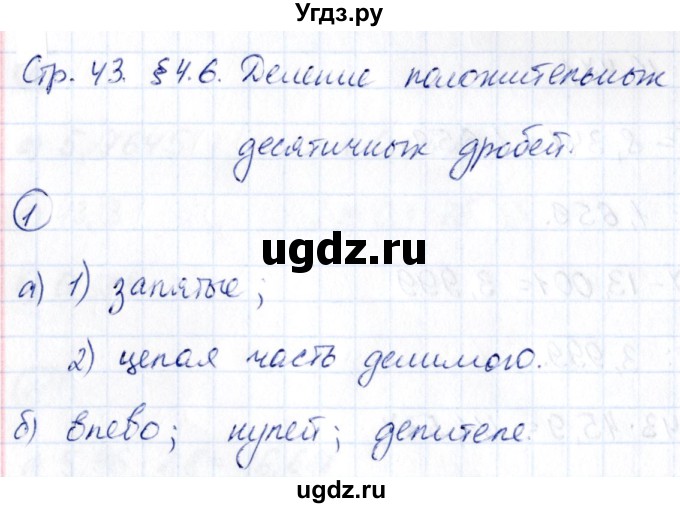 Угдз.ру
Стр. 43. § 4.6. Деление положительных
десятичных дробей.
1
ugdz.ru
а) 1) запятые;
2) целая часть делимого.
б) влево; нулей; делителе.
ugdz.ru